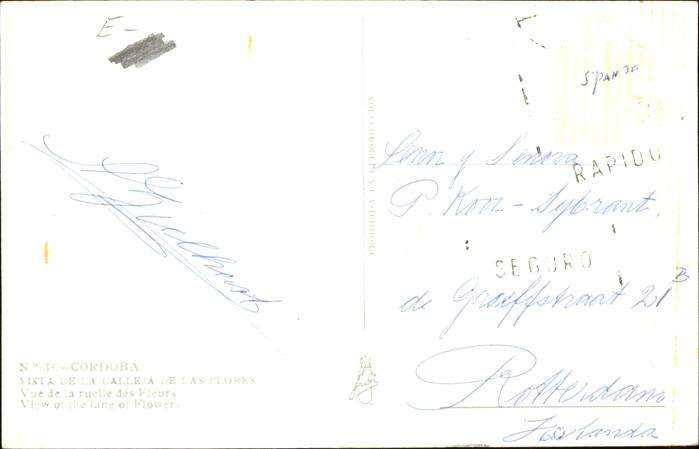 E-
SPAN 3F
Senor y Senora
RAPIDO
P. Koor - Sybrant.
SEGURO
de Graeffstraat 21 B
Rotterdam
Holanda
PROHIBIDA LA REPRODUCCIÓN
CORDOBA
VISTA DE LA CALLEJA DE LAS FLORES
Vue de la ruelle des Fleurs
View of the lang of Flowers